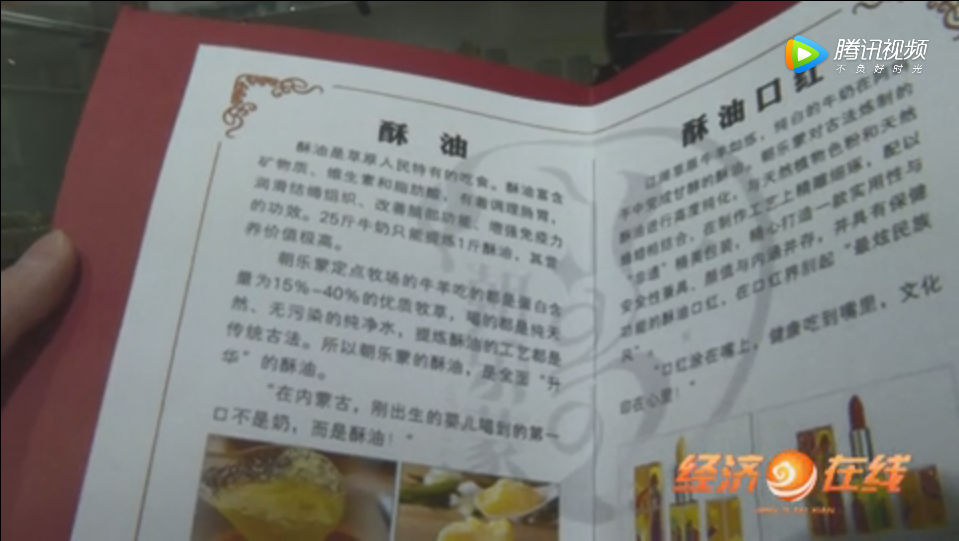 腾讯视频
不负好时光
酥 油
酥油是草原人民特有的吃食。酥油富含
矿物质、维生素和脂肪酸,有着调理肠胃,
润滑结缔组织、改善脑部功能、增强免疫力
的功效。25斤牛奶只能提炼1斤酥油,其营
养价值极高。
朝乐蒙定点牧场的牛羊吃的都是蛋白含
量为15%-40%的优质牧草,喝的都是纯天
然、无污染的纯净水,提炼酥油的工艺都是
传统古法。所以朝乐蒙的酥油,是全面“升
华”的酥油。
“在内蒙古,刚出生的婴儿喝到的第一
口不是奶,而是酥油!”
酥油口红
辽阔草原牛羊如烁,纯白的牛奶在
手中变成甘醇的酥油。朝乐蒙对古法炼制的
酥油进行高度纯化,与天然植物色粉和天然
蜂蜡相结合,在制作工艺上精雕细琢,配以
“非遗”精美包装,精心打造一款实用性与
安全性兼具、颜值与内涵并存,并具有保健
功能的酥油口红,在口红界刮起“最炫民族
风”。
“口红涂在嘴上,健康吃到嘴里,文化
印在心里!”
经济在线